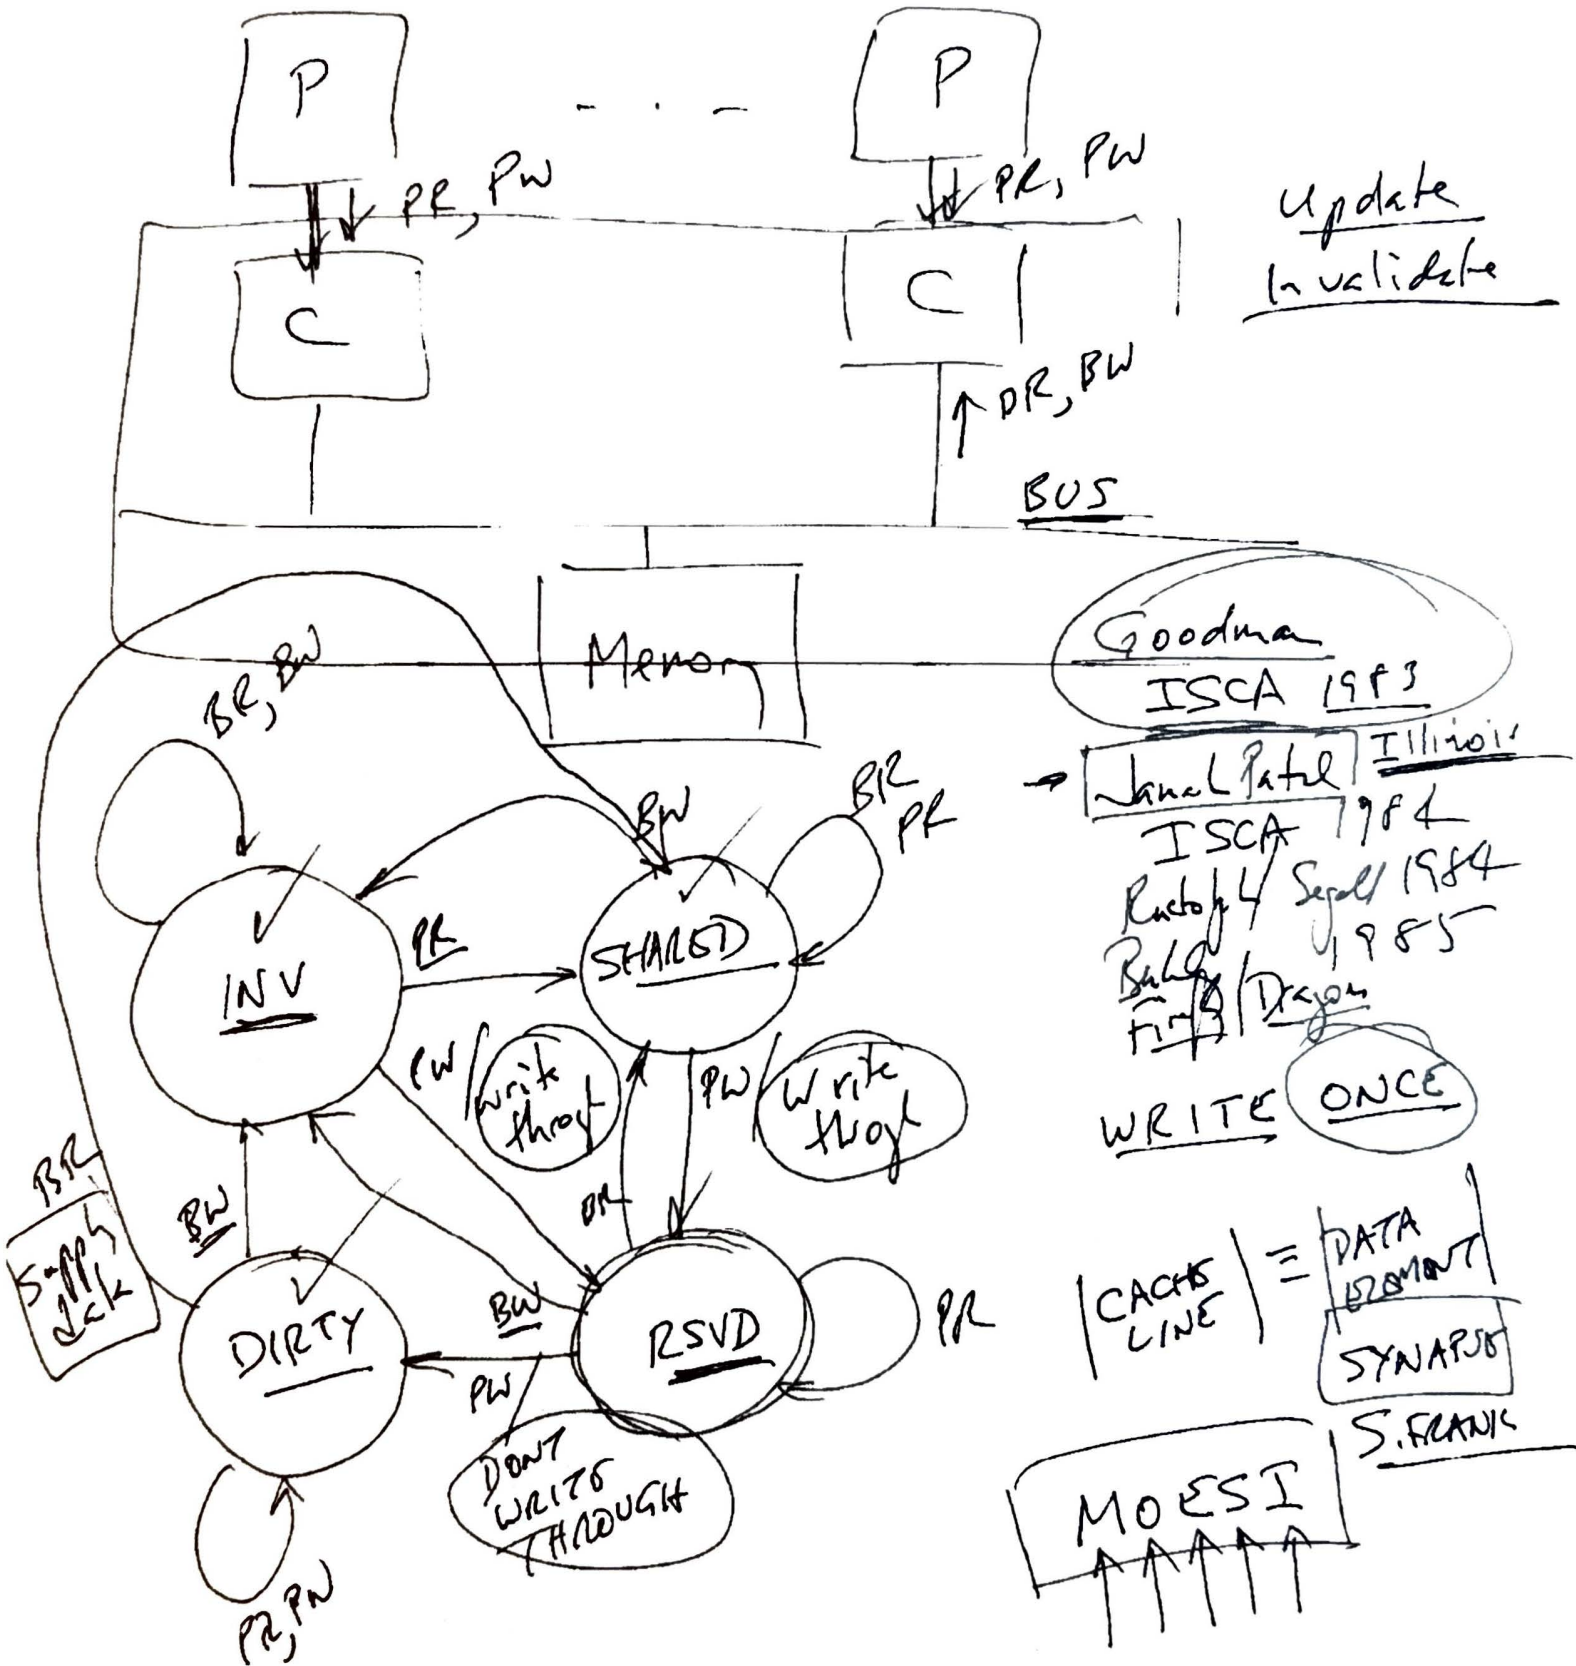 P
P
PR, PW
PR, PW
Update
Invalidate
C
C
BR, BW
BUS
Memory
Goodman
ISCA 1983
Illinois
Janak Patel
ISCA 1984
Rudolph / Segall 1984
1985
Firefly / Dragon
WRITE ONCE
BR, BW
BW
BR
PR
INV
PR
SHARED
PW / write through
PW / Write through
BR
BW
BR
Supply
BW
DIRTY
PW
RSVD
PR
DONT
WRITE
THROUGH
PR, PW
CACHE
LINE
≡
DATA
ELEMENT
SYNAPSE
S. FRANK
MOESI